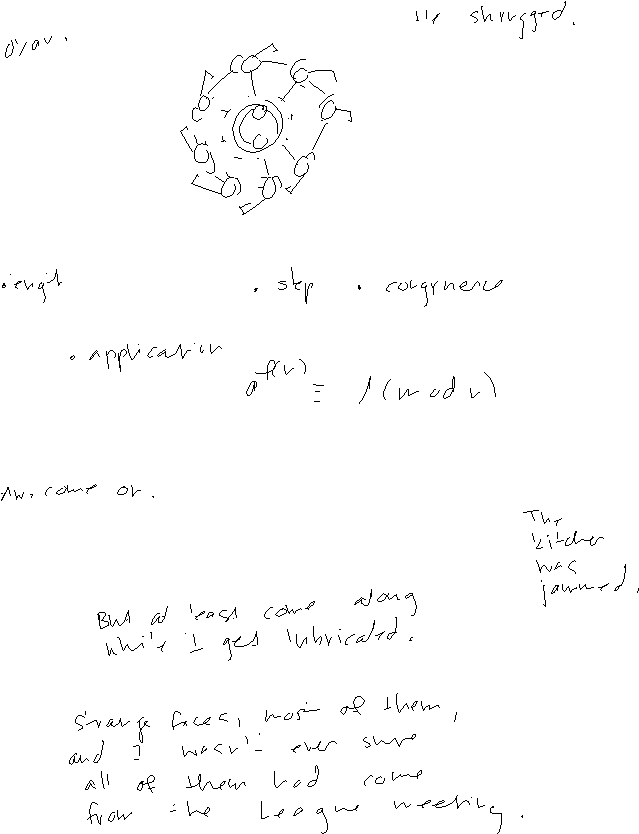 He shrugged.
Okay.
• length
• step
• congruence
• application
a^{f(n)} ≡ 1 (mod n)
Aw, come on.
The
kitchen
was
jammed.
But at least come along
while I get lubricated.
Strange faces, most of them,
and I wasn't ever sure
all of them had come
from the League meeting.